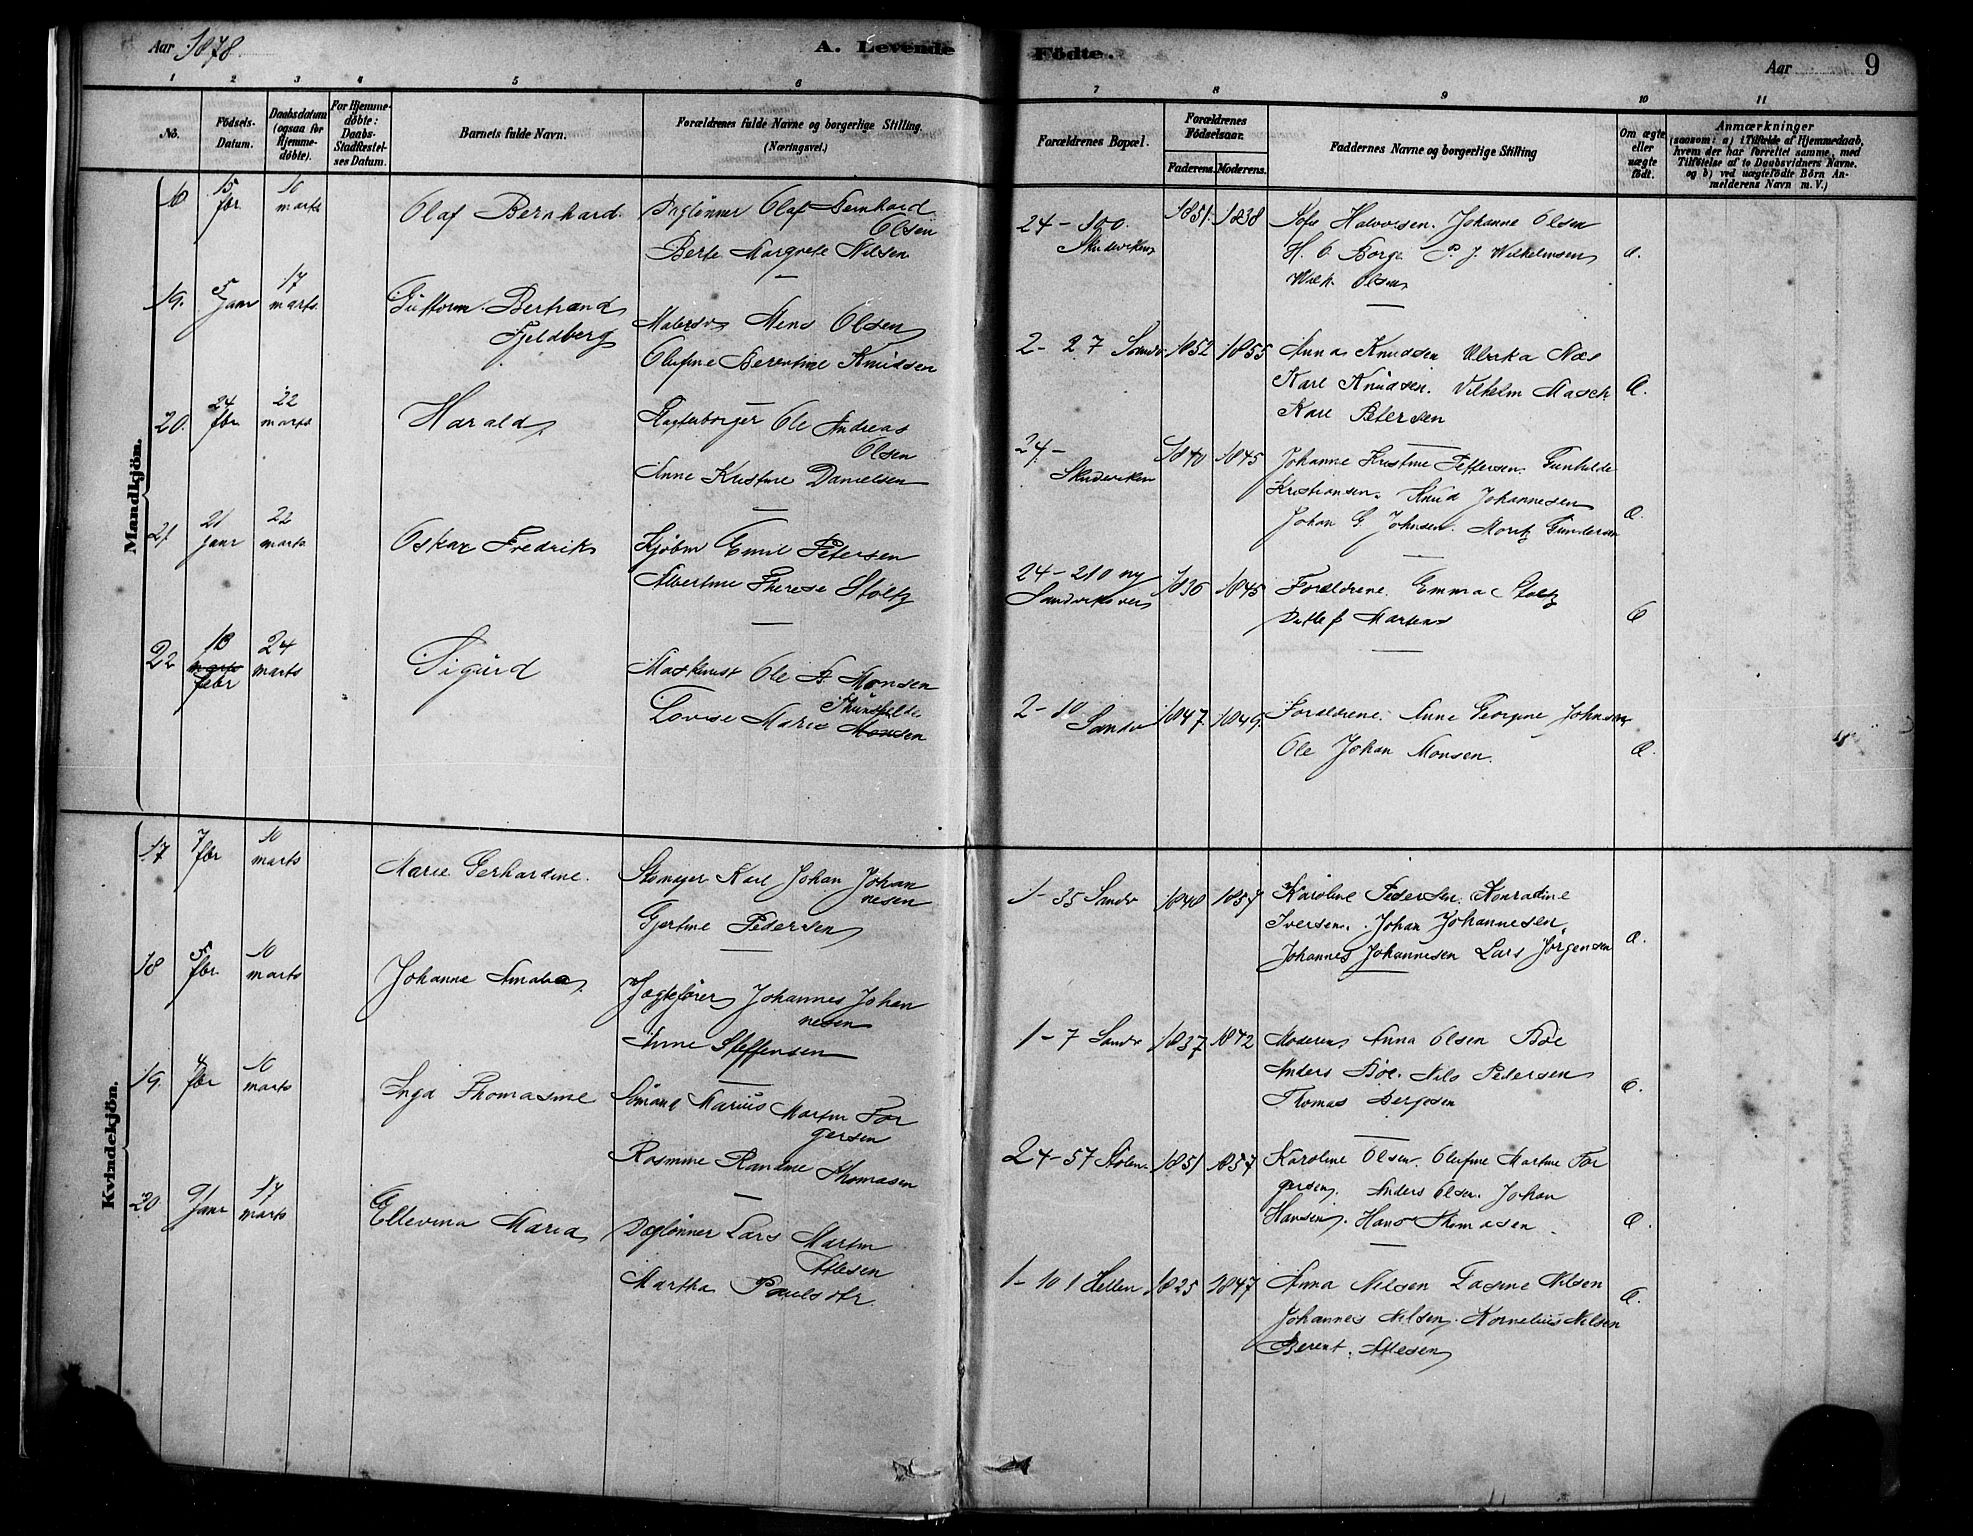 Aar 1878.
A. Levende Födte.
Aar 9
1 2 3 4 5 6 7 8 9 10 11
No.
Födsels-Datum.
Daabsdatum (ogsaa for Hjemme-döbte).
For Hjemme-döbte: Daabs-Stadfæstel-ses Datum.
Barnets fulde Navn.
Forældrenes fulde Navne og borgerlige Stilling.
(Næringsvei.)
Forældrenes Bopæl.
Forældrenes Födselsaar.
Faderens. Moderens.
Faddernes Navne og borgerlige Stilling
Om ægte eller uægte födt.
Anmærkninger
(saasom: a) i Tilfælde af Hjemmedaab,
hvem der har forrettet samme, med
Tilföielse af to Daabsvidners Navne.
og b) ved uægtefödte Börn An-
melderens Navn m. V.)
Mandkjön.
15 fbr 10 marts Olaf Bernhard. Daglønner Olaf Bernhard
Olsen
Berte Margrete Nilsen
24 - 190.
Skudeviken
1851. 1838
Sofie Halvorsen. Johanne Olsen
H. O. Borge P. J. Wilhelmsen
Wilh. Olsen
Æ.
19. 5 Janr 17 marts. Guttorm Bertrand
Fjeldberg
Malersv Mens Olsen
Olufine Berentine Knudsen
2 - 27 Sandv 1852 1855
Anna Knudsen Ulrika Næs
Karl Knudsen. Vilhelm Masch
Karl Petersen
Æ.
20. 24 fbr 22 marts Harald
Ole Andreas
Olsen
Anne Kristine Danielsen
24 -
Skudeviken
1840 1845
Johanne Kristine Pettersen. Gunhilde
Kristiansen. Knud Johannesen
Johan G. Johnsen. Moritz Gundersen
Æ.
21. 21 Janr 22 marts Oskar Fredrik
Kjøbm Emil Petersen
Albertine Therese Stoltz
24 - 210 ny
Sandviksvei
1836 1845
Forældrene. Emma Stoltz
Detlef Martens
Æ
22 18 marts febr 24 marts Sigurd
Maskinist Ole A. Monsen
Thunhilde
Lovise Marie Monsen
2 - 10 Sandv 1847. 1849.
Forældrene. Anne Georgine Johnsen
Ole Johan Monsen.
Æ.
Kvindekjön.
17 7 fbr 10 marts Marie Gerhardine.
Skomager Karl Johan Johan
nesen
Gjertine Pedersen
1 - 35 Sandv 1848 1857
Karoline Pedersen. Konradine
Iversen. Johan Johannesen.
Johannes Johannesen Lars Jørgensen
Æ.
18 5 fbr. 10 marts Johanne Amalia.
Jægtefører Johannes Johan
nesen
Anne Steffensen
1 - 7 Sandv 1837 1842
Moderen Anna Olsen Bøe
Anders Bøe. Nils Pedersen
Thomas Bergesen
Æ.
19. 4 fbr 10 marts Inga Thomasine
Sømand Marius Martin Tor
gersen
Rasmine Randine Thomasen
24 - 57 Stølen 1851 1857
Karoline Olsen. Olufine Martine Tor
gersen. Anders Olsen. Johan
Hansen. Hans Thomasen
Æ.
20 9 Janr 17 marts Ellevina Maria
Daglønner Lars Martin
Atlesen
Martha Paulsdtr.
1 - 101 Hellen 1825 1847
Anna Nilsen Tasine Nilsen
Johannes Nilsen. Kornelius Nilsen
Berent. Atlesen
Æ.